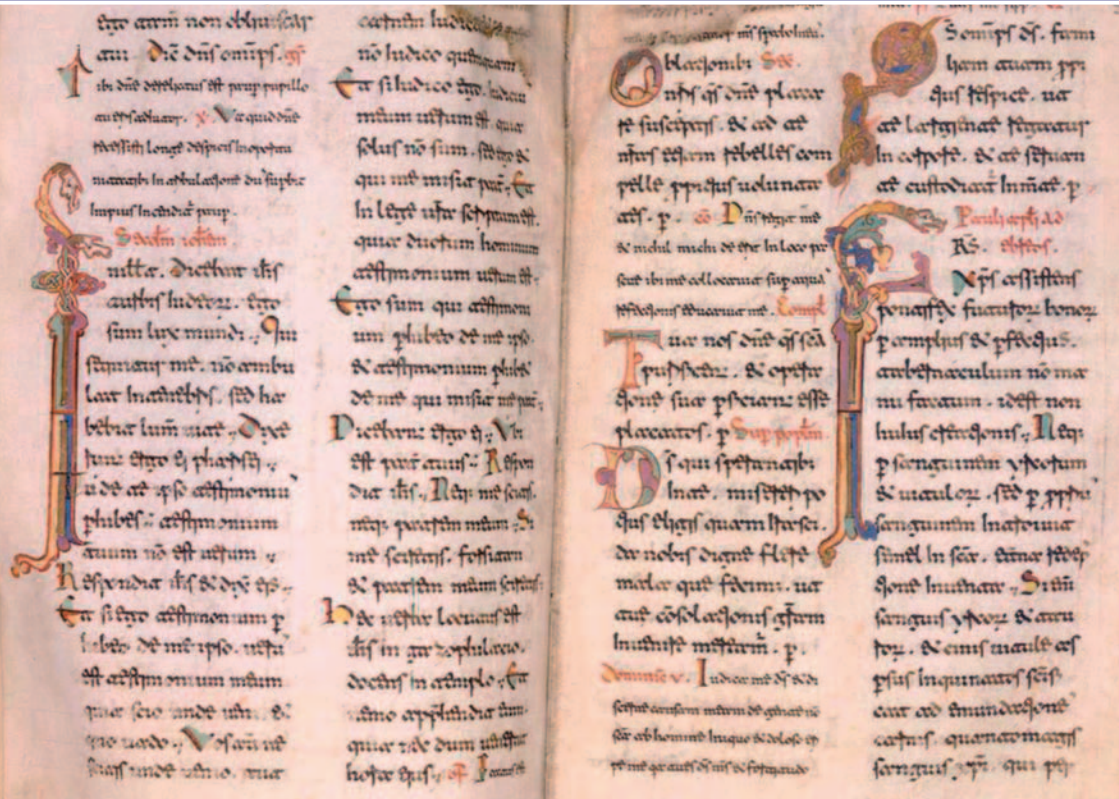 ego autem non obliuiscar
tui
ibi dne derelictus est paup pupillo
tu eris adiutor. V Ut quid dne
recessisti longe despicis in oportu
nitatibus in tribulatione du supbit
impius incendit paup.
Dicebat ihs
turbis iudeor. Ego
sum lux mundi. Qui
sequitur me. no ambu
lat in tenebris. sed ha
bebit lum uite. Dixe
runt ergo ei pharisei.
Tu de te ipso testimoniu
phibes. testimonium
tuum no est uerum.
Respondit ihs & dix eis.
Et si ego testimonium p
hibeo de me ipso. ueru
est testimonium meum
quia scio unde ueni. &
quo uado. Vos aute ne
scitis unde uenio. aut
no iudico quemquam
Et si iudico ego. iudiciu
meum uerum est. quia
solus no sum. sed ego &
qui me misit pat. Et
in lege ura scriptum est.
quia duorum hominum
testimonium uerum est.
Ego sum qui testimoni
um phibeo de me ipso.
& testimonium phibet
de me qui misit me pat.
Dicebant ergo ei. Vbi
est pater tuus. Respon
dit ihs. Neq; me scitis.
neq; patrem meum. Si
me sciretis. forsitan
& patrem meum sciretis.
Hec uerba locutus est
ihs in gazophilacio.
docens in templo. Et
nemo apphendit eum.
quia necdum uenerat
hora eius.
Oblationibus
nris qs dne placare
re susceptis. & ad te
nras etiam rebelles com
pelle ppitius uolunta
tes. p. co Dns regit me
& nichil michi deerit in loco pas
cue ibi me collocauit sup aqua
refectionis educauit me. Compl
Tua nos dne qs sca
purificent. & opera
tione sua pficiant esse
placatos. p Sup popm.
Ds qui sperantibus
in te. misereri po
tius eligis quam irasci.
da nobis digne flere
mala que fecim. ut
tue cosolationis gram
inuenire meream. p.
Dominic v. Iudica me ds & di
scerne causam meam de gente no
sca ab homine iniquo & doloso eri
pe me quia tu es ds ms & fortitudo
S omips ds. fami
liam tuam ppi
tius respice. ut
te largiente regatur
in corpore. & te seruan
te custodiatur in mte. p
Pauli apli ad
FRS. ebreos.
Xps assistens
pontifex futuror bonor
p amplius & pfectius
tabernaculum no ma
nu factum. idest non
huius creationis. Neq;
p sanguinem yrcorum
& uitulor. sed p ppriu
sanguinem introiuit
semel in sca. eterna redep
tione inuenta. Si eni
sanguis yrcor & tau
ror. & cinis uitule as
psus inquinatos scifi
cat ad emundatione
carnis. quantomagis
sanguis xpi. qui per